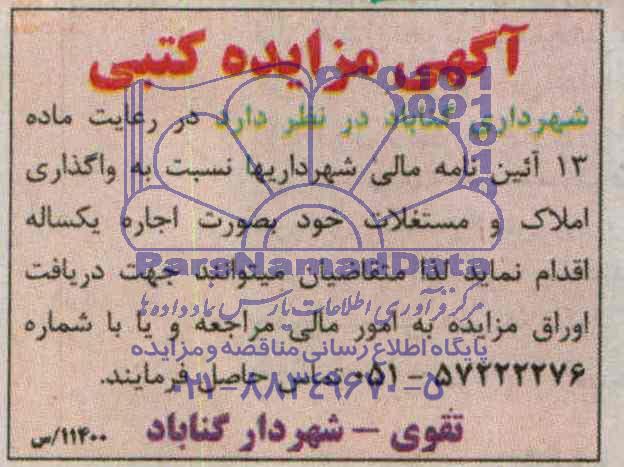 آگهی مزایده کتبی
شهرداری گناباد در نظر دارد در رعایت ماده
۱۳ آئین نامه مالی شهرداریها نسبت به واگذاری
املاک و مستغلات خود بصورت اجاره یکساله
اقدام نماید لذا متقاضیان میتوانند جهت دریافت
اوراق مزایده به امور مالی مراجعه و یا با شماره
۵۷۲۲۲۲۷۶ - ۰۵۱ تماس حاصل فرمایند.
تقوی - شهردار گناباد
۱۱۴۰۰/س
ParsNamadData
مرکز فرآوری اطلاعات پارس نماد داده ها
پایگاه اطلاع رسانی مناقصه و مزایده
۰۲۱-۸۸۳۴۹۶۷۰-۵